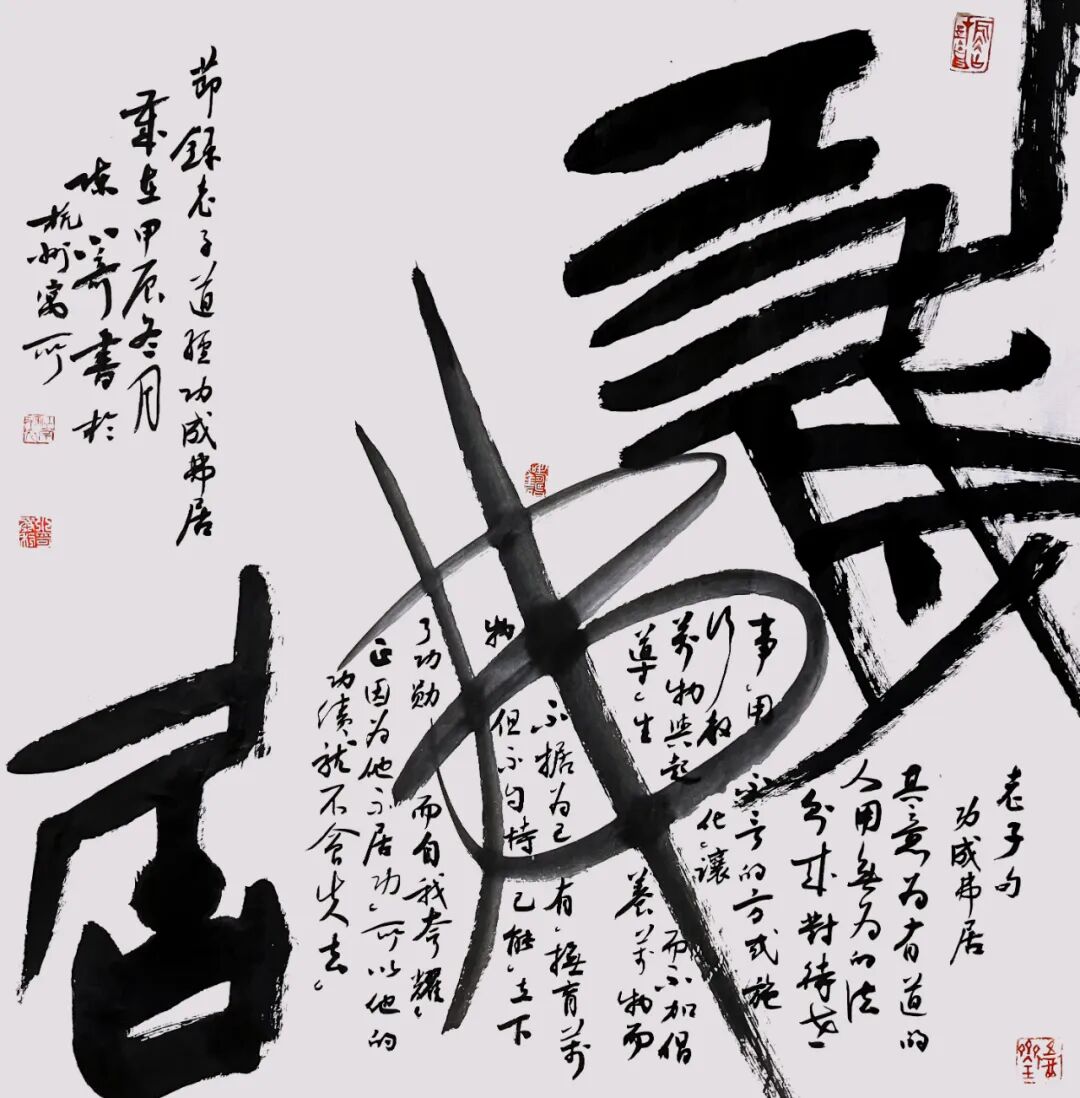 功成
弗
居
老子句
功成弗居
其意为有道的
人用無为的法
来對待世
事,用不言的方式施
行教化,讓
萬物興起而不加倡
導,生養萬物而
不据为己有,撫育萬
物但不自恃己能,立下
了功勋,而自我夸耀,
正因为他不居功,所以他的
功绩就不会失去。
節録老子道經功成弗居
歲在甲辰冬月
陳書於
杭州寓所